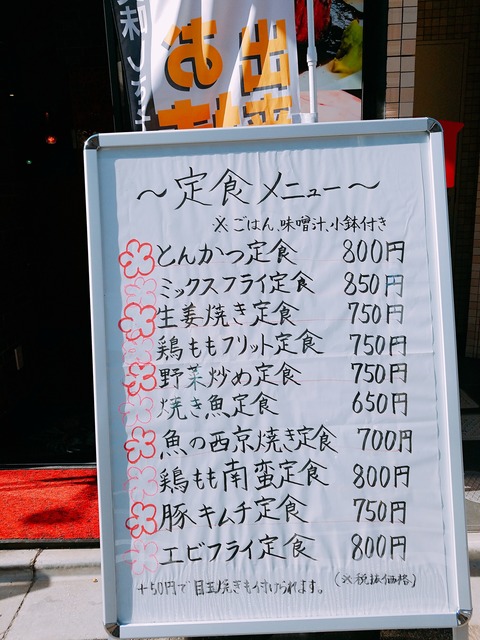 ～定食メニュー～
※ごはん、味噌汁、小鉢付き
とんかつ定食 800円
ミックスフライ定食 850円
生姜焼き定食 750円
鶏ももフリット定食 750円
野菜炒め定食 750円
焼き魚定食 650円
魚の西京焼き定食 700円
鶏もも南蛮定食 800円
豚キムチ定食 750円
エビフライ定食 800円
+50円で目玉焼きも付けられます。 (※税抜価格)